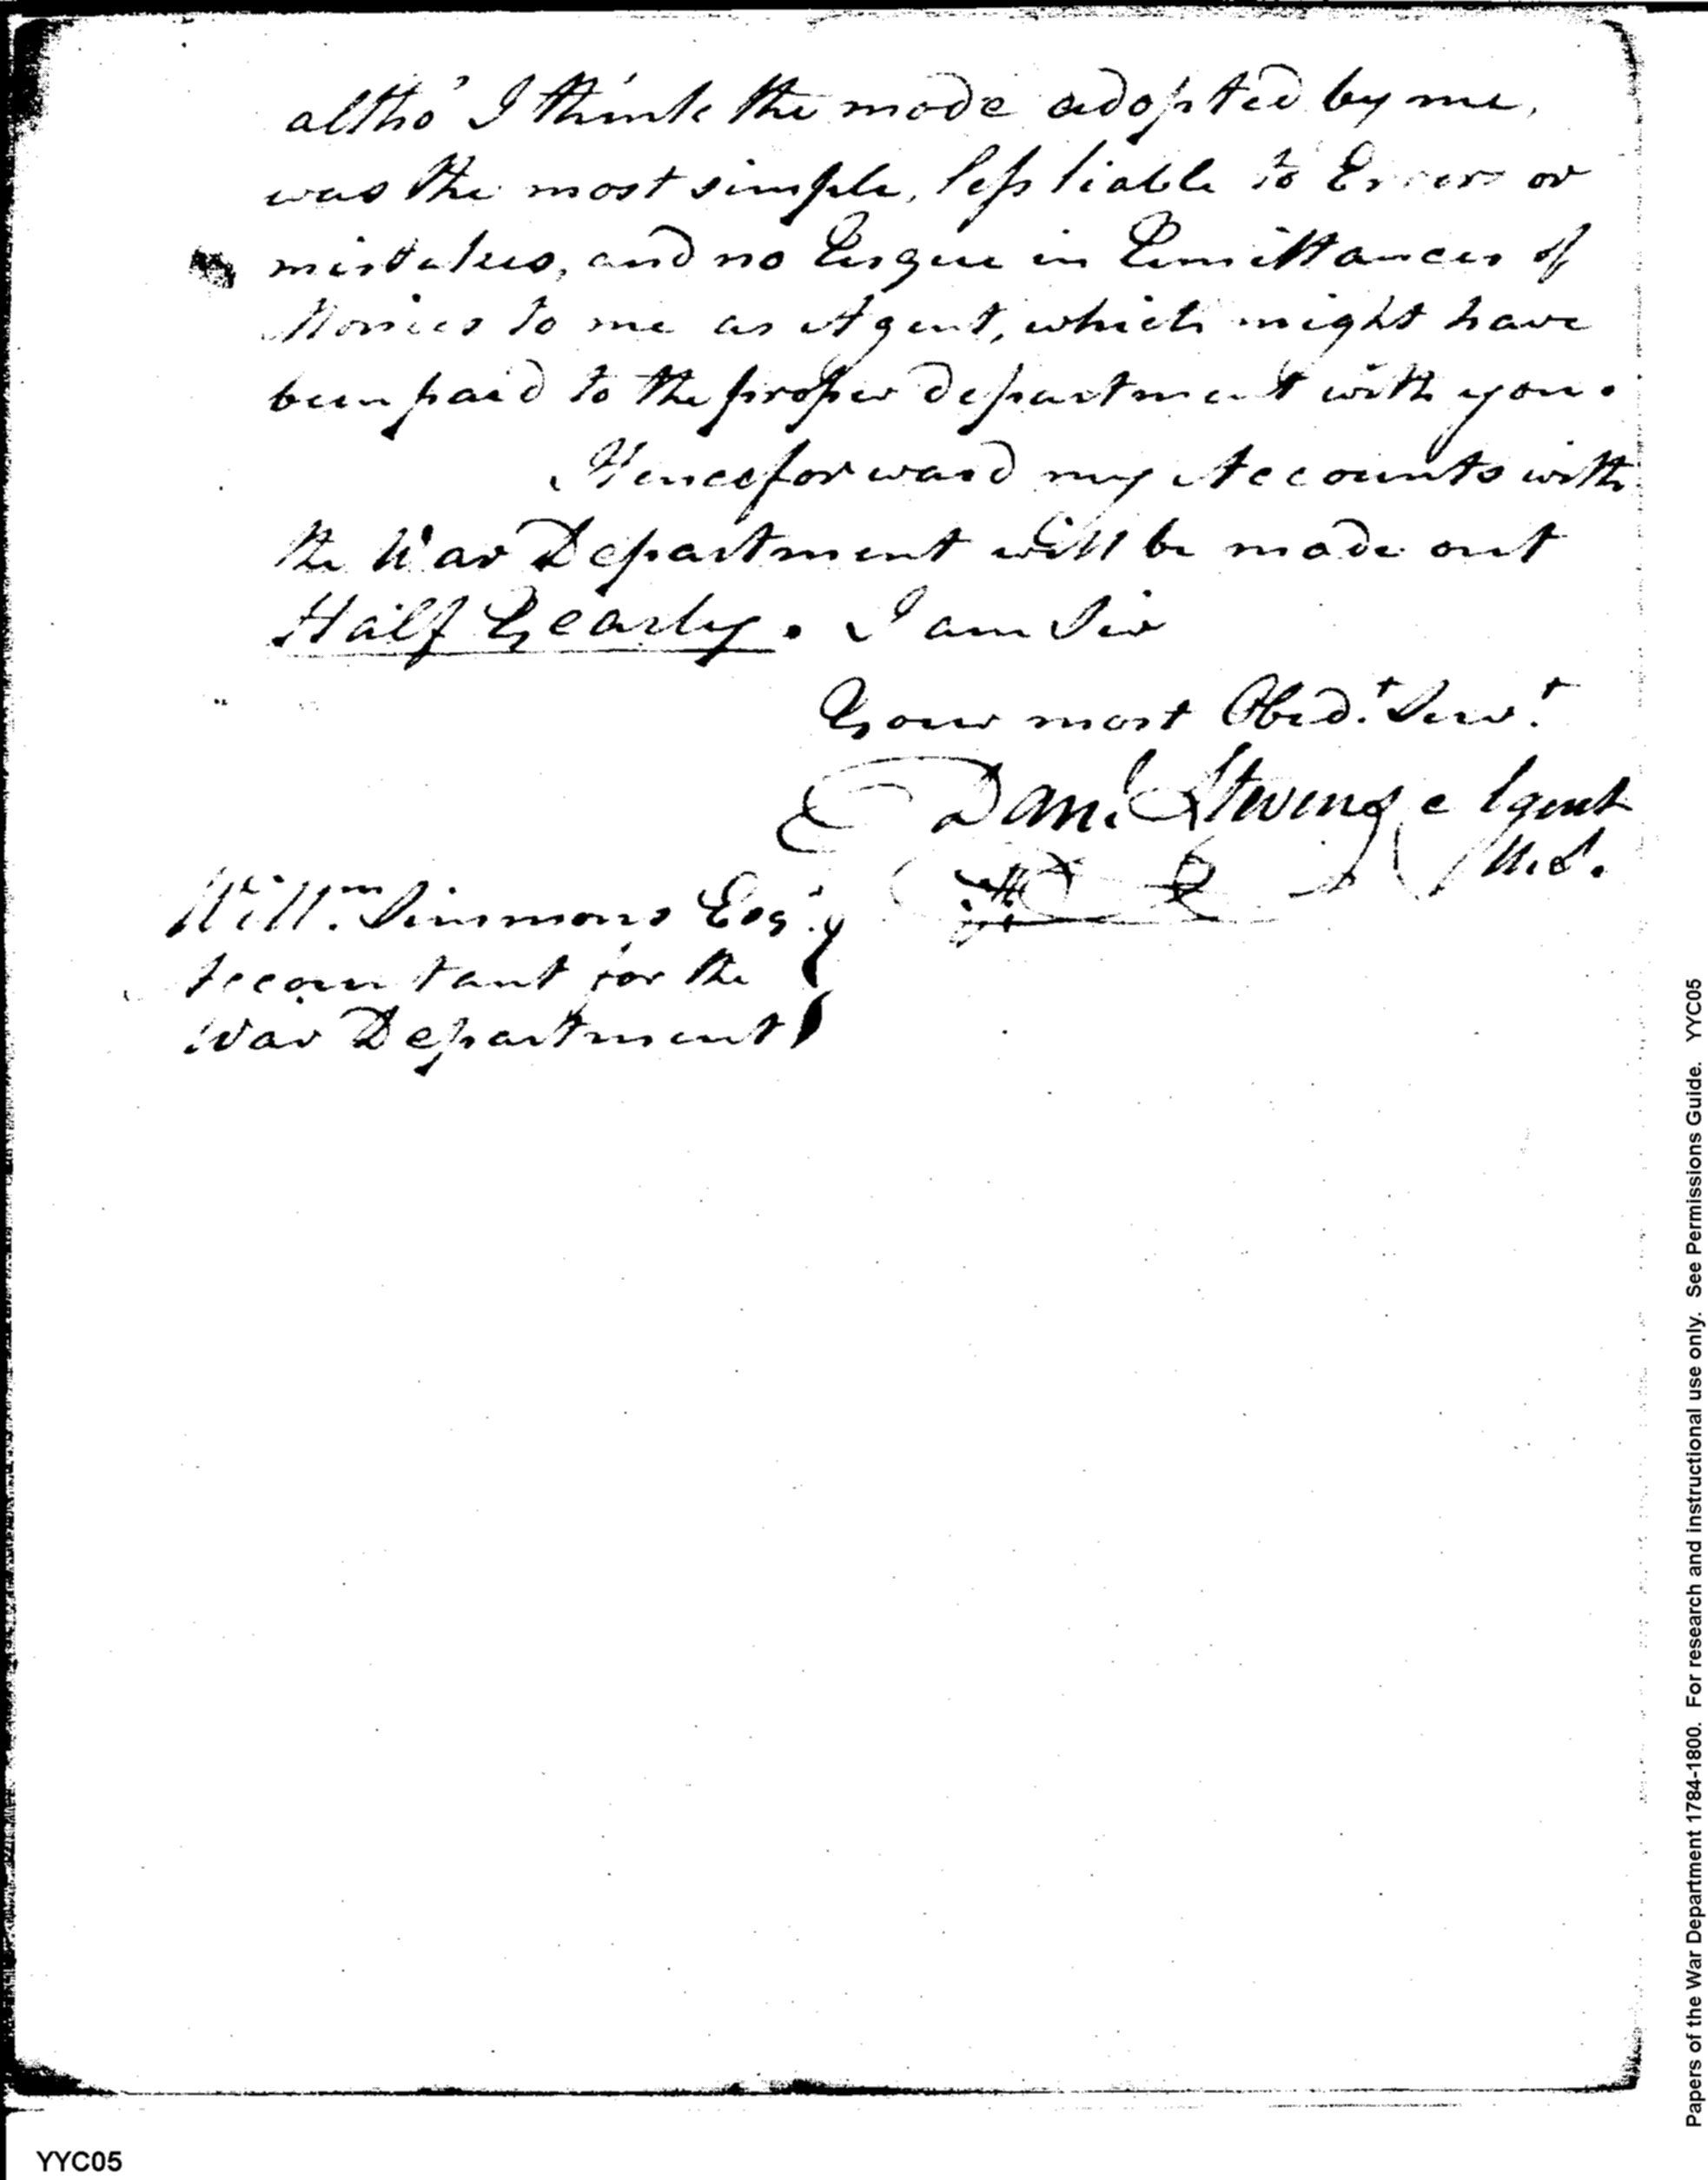 altho' I think the mode adopted by me,
was the most simple, less liable to Errors or
mistakes, and no Risque in Remittances of
Monies to me as Agent, which might have
been paid to the proper department with you.
Henceforward my Accounts with
the War Department will be made out
Half Yearly. I am Sir
Your most Obed.t Serv.t
Dan.l Stevens Agent
Will.m Simmons Esq.
Accountant for the
War Department
Papers of the War Department 1784-1800. For research and instructional use only. See Permissions Guide. YYC05
YYC05